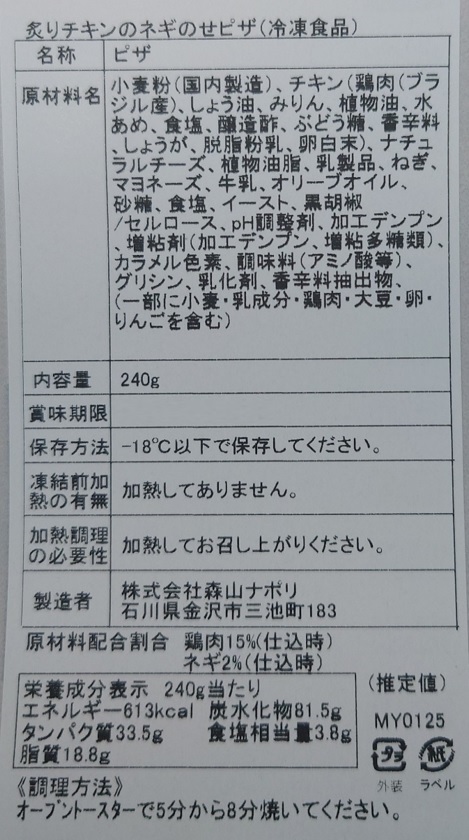 炙りチキンのネギのせピザ(冷凍食品)
名称 ピザ
原材料名 小麦粉(国内製造)、チキン(鶏肉(ブラ
ジル産)、しょう油、みりん、植物油、水
あめ、食塩、醸造酢、ぶどう糖、香辛料
、しょうが、脱脂粉乳、卵白末)、ナチュ
ラルチーズ、植物油脂、乳製品、ねぎ、
マヨネーズ、牛乳、オリーブオイル、
砂糖、食塩、イースト、黒胡椒
/セルロース、pH調整剤、加工デンプン
、増粘剤(加工デンプン、増粘多糖類)、
カラメル色素、調味料(アミノ酸等)、
グリシン、乳化剤、香辛料抽出物、
(一部に小麦・乳成分・鶏肉・大豆・卵・
りんごを含む)
内容量 240g
賞味期限
保存方法 -18℃以下で保存してください。
凍結前加
熱の有無 加熱してありません。
加熱調理
の必要性 加熱してお召し上がりください。
製造者 株式会社森山ナポリ
石川県金沢市三池町183
原材料配合割合 鶏肉15%(仕込時)
ネギ2%(仕込時)
栄養成分表示 240g当たり
エネルギー613kcal 炭水化物81.5g
タンパク質33.5g 食塩相当量3.8g
脂質18.8g
(推定値)
MY0125
プラ 紙
外装 ラベル
《調理方法》
オーブントースターで5分から8分焼いてください。